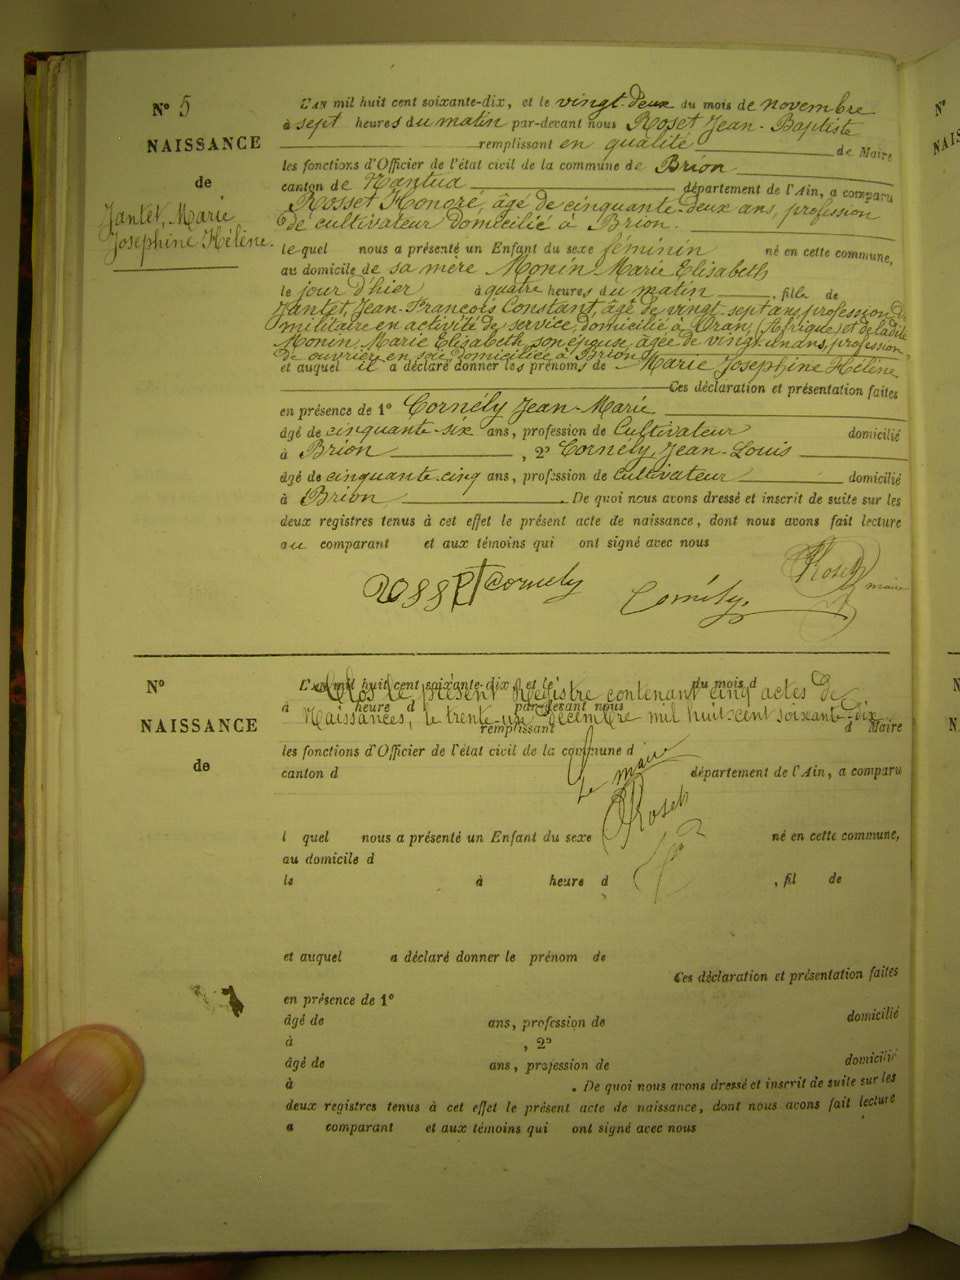 N° 5
NAISSANCE
de
Jantet, Marie
Joséphine Hélène.
L'AN mil huit cent soixante-dix, et le vingt-deux du mois de novembre
à sept heures du matin par-devant nous Roset Jean-Baptiste
remplissant en qualité de Maire
les fonctions d'Officier de l'état civil de la commune de Brion
canton de Nantua département de l'Ain, a comparu
Rosset Honoré, âgé de cinquante-deux ans, profession
de cultivateur domicilié à Brion.
lequel nous a présenté un Enfant du sexe féminin né en cette commune,
au domicile de sa mère Monin Marie Elisabeth
le jour d'hier à quatre heures du matin, fille de
Jantet, Jean-François Constant, âgé de vingt-sept ans, profession de
militaire en activité de service, domicilié à Oran (Afrique) et de ladite
Monin, Marie Elisabeth, son épouse, âgée de vingt-un ans, profession
de ouvrière en soie domiciliée à Brion
et auquel il a déclaré donner les prénoms de Marie Joséphine Hélène
Ces déclaration et présentation faites
en présence de 1° Cornély Jean-Marie
âgé de cinquante-six ans, profession de Cultivateur domicilié
à Brion, 2° Cornély, Jean-Louis
âgé de cinquante-cinq ans, profession de Cultivateur domicilié
à Brion. De quoi nous avons dressé et inscrit de suite sur les
deux registres tenus à cet effet le présent acte de naissance, dont nous avons fait lecture
au comparant et aux témoins qui ont signé avec nous
Rosset Cornely Cornély Roset maire
N°
NAISSANCE
de
L'AN mil huit cent soixante-dix, et le du mois d
Clos le présent Registre contenant cinq actes de
à heure d par-devant nous
Naissances, le trente-un Décembre mil huit cent soixante-dix
remplissant d Maire
les fonctions d'Officier de l'état civil de la commune d
Le maire
canton d département de l'Ain, a comparu
Roset
l quel nous a présenté un Enfant du sexe né en cette commune,
au domicile d
le à heure d , fil de
et auquel a déclaré donner le prénom de
Ces déclaration et présentation faites
en présence de 1°
âgé de ans, profession de domicilié
à , 2°
âgé de ans, profession de domicilié
à . De quoi nous avons dressé et inscrit de suite sur les
deux registres tenus à cet effet le présent acte de naissance, dont nous avons fait lecture
a comparant et aux témoins qui ont signé avec nous
N°
NAIS
N